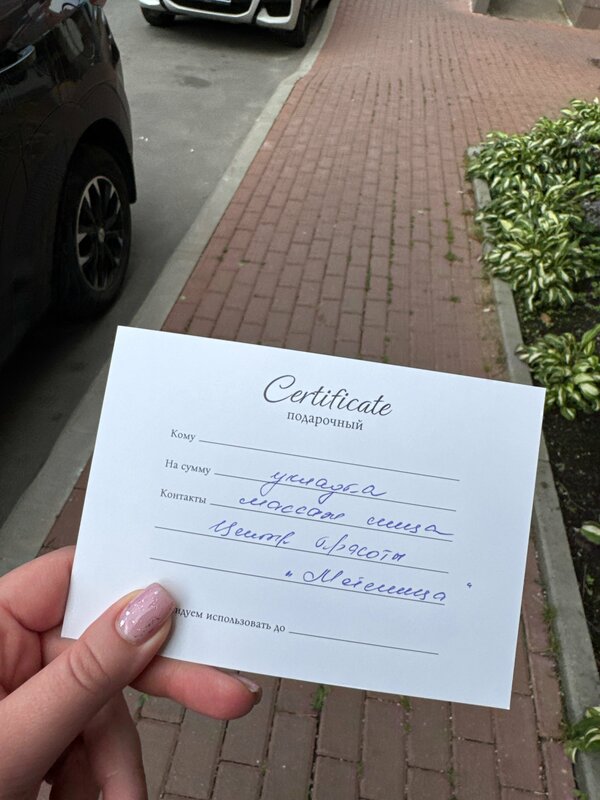 Certificate
подарочный
Кому
На сумму укладка
Контакты массаж лица
Центр красоты
"
использовать до